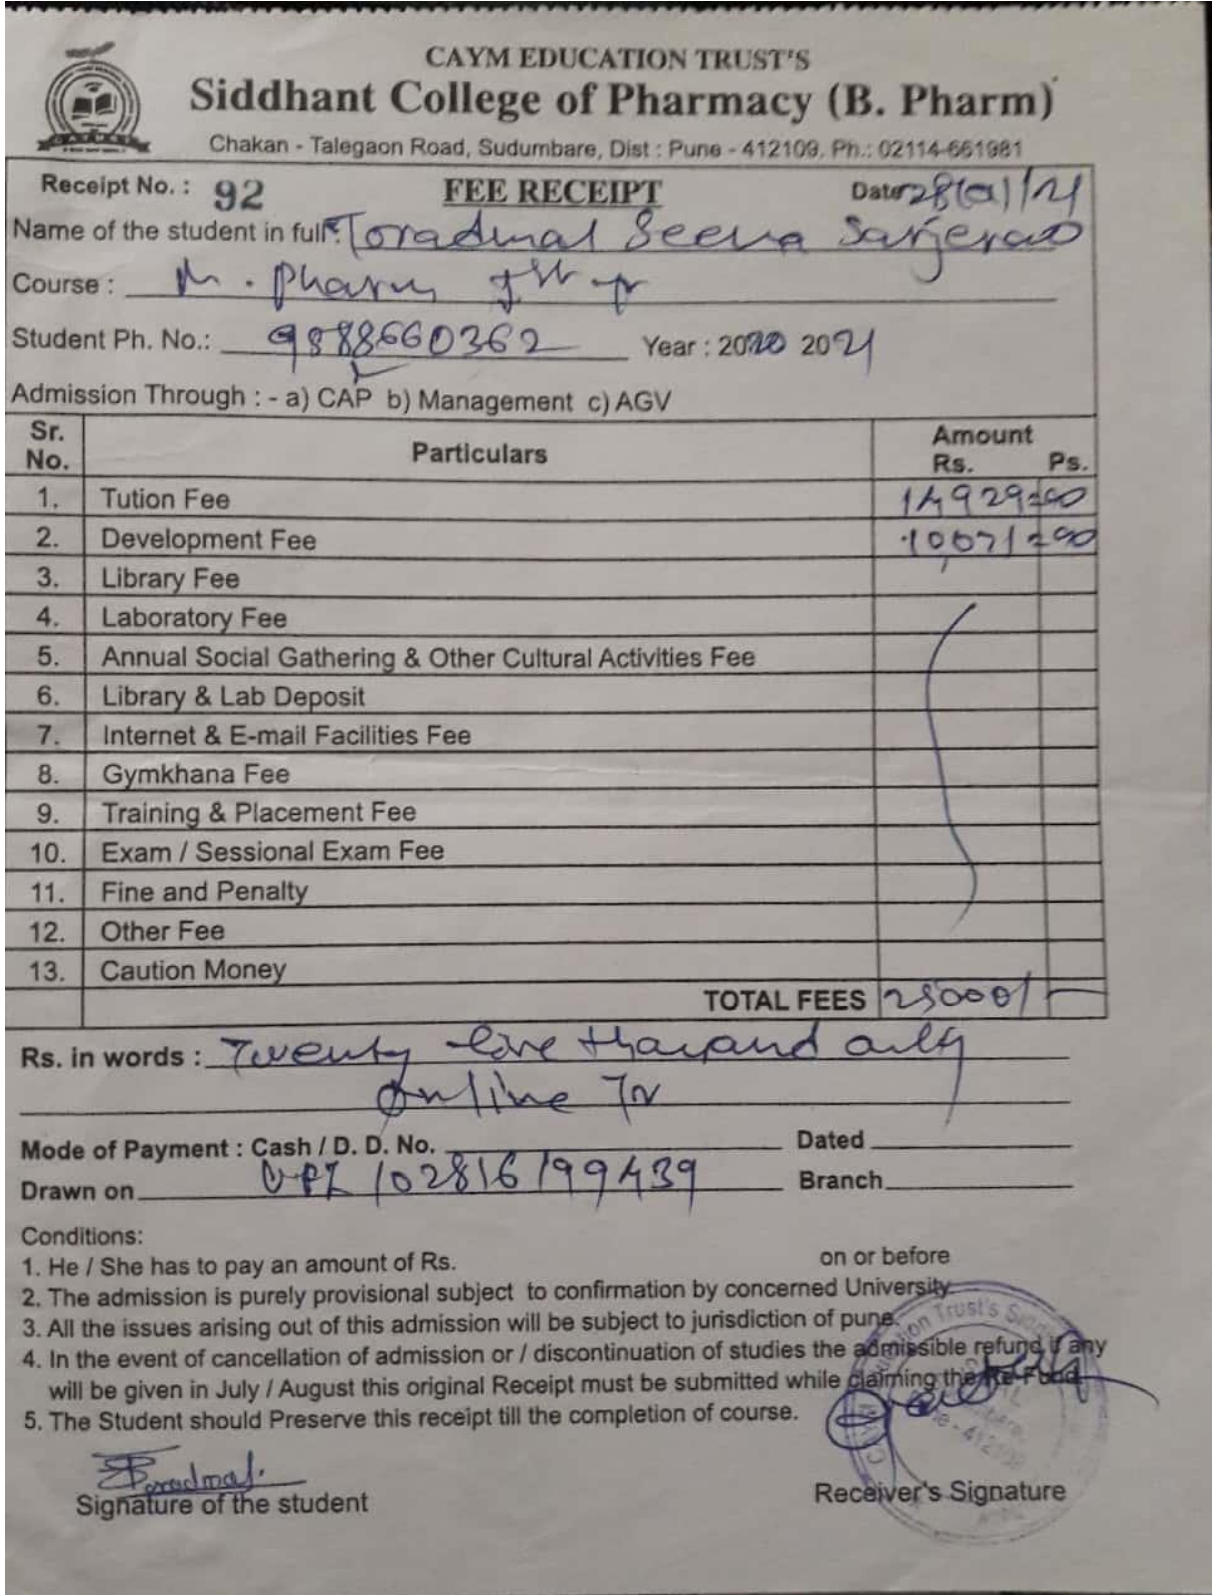 CAYM EDUCATION TRUST'S
Siddhant College of Pharmacy (B. Pharm)
Chakan - Talegaon Road, Sudumbare, Dist : Pune - 412109, Ph.: 02114-661981
Receipt No. : 92 FEE RECEIPT Date 28/01/21
Name of the student in full : Toradmal Seema Sarjerao
Course : M. Pharm Ist yr
Student Ph. No.: 9888660362 Year : 2020 2021
Admission Through : - a) CAP b) Management c) AGV
Sr. No. Particulars Amount Rs. Ps.
1. Tution Fee 14929=00
2. Development Fee 10071=00
3. Library Fee
4. Laboratory Fee
5. Annual Social Gathering & Other Cultural Activities Fee
6. Library & Lab Deposit
7. Internet & E-mail Facilities Fee
8. Gymkhana Fee
9. Training & Placement Fee
10. Exam / Sessional Exam Fee
11. Fine and Penalty
12. Other Fee
13. Caution Money
TOTAL FEES 25000/-
Rs. in words : Twenty five thousand only
Online Tr
Mode of Payment : Cash / D. D. No. Dated
Drawn on UPI /102816199439 Branch
Conditions:
1. He / She has to pay an amount of Rs. on or before
2. The admission is purely provisional subject to confirmation by concerned University.
3. All the issues arising out of this admission will be subject to jurisdiction of pune.
4. In the event of cancellation of admission or / discontinuation of studies the admissible refund if any
will be given in July / August this original Receipt must be submitted while claiming the Re-Fund
5. The Student should Preserve this receipt till the completion of course.
Toradmal
Signature of the student Receiver's Signature